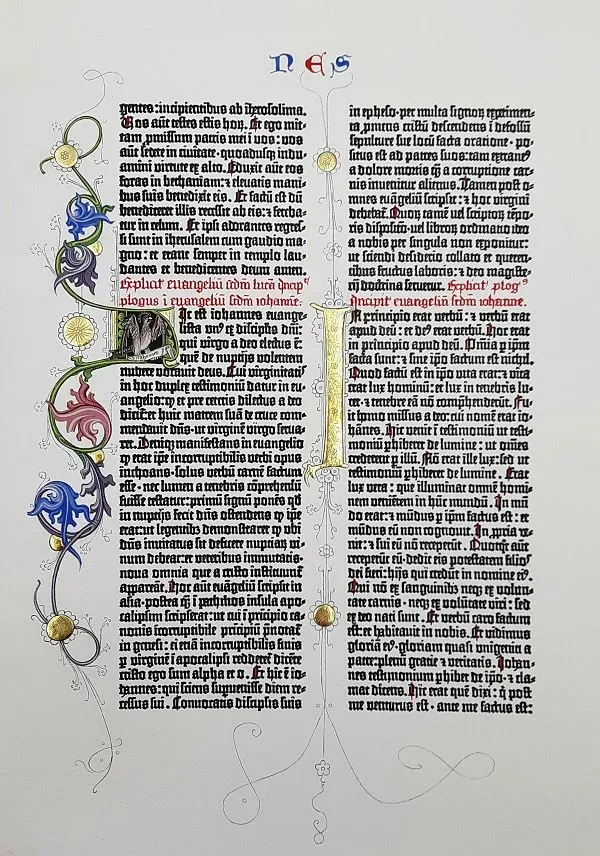 NES
gentes: incipientibus ab iherosolima.
Vos aūt testes estis hoꝝ. Et ego mit-
tam ꝓmissum patris mei ī vos: vos
aūt sedete in civitate · quoadusqꝫ indu-
amini virtute ex alto. Eduxit aūt eos
foras in bethaniam: ⁊ elevatis mani-
bus suis benedixit eis. Et factū est dū
benediceret illis recessit ab eis: ⁊ fereba-
tur in celum. Et ipsi adorantes regres-
si sunt in iherusalem cum gaudio ma-
gno: et erant semper in templo lau-
dantes et benedicentes deum amen.
Explicit euangeliū scdm lucā Incip̄
plogus ī euangeliū scdm iohanne.
Hic est iohannes euange-
lista vnꝰ ex discipl̄is dn̄i:
qui virgo a deo electus ē
quē de nuptijs volentem
nubere vocauit deus. Cui virginitatis
in hoc duplex testimoniū datur in eu-
angelio: ꝙ et pre ceteris dilectus a deo
dicit᷑: et huic matrem suā de cruce com-
mendauit dn̄s · ut virginē virgo serua-
ret. Deniqꝫ manifestans in euangelio
ꝙ erat ip̄e incorruptibilis verbi opus
inchoans · solus verbū carnē factum
esse · nec lumen a tenebris cōprehensū
fuisse testatur: primū signū ponēs qd̄
in nuptijs fecit dn̄s ostendens ꝙ ip̄e
erat: ut legentibꝫ demonstraret ꝙ ubi
dn̄s inuitatus sit deficere nuptiaꝝ vi-
num debeat: et veteribus immutatis ·
noua omnia que a cristo instituunt᷑
appareāt. Hoc aūt euāgeliū scripsit in
asia · postea qꝫ ī pathmos insula apo-
calipsim scripserat: ut cui ī prīcipio ca-
nonis īcorruptibile prīcipiū p̄notat᷑
in genesi: ei etiā incorruptibilis finis
ꝑ virginē ī apocalipsi redderet᷑ dicēte
cristo ego sum alpha et o. Et hic ē io-
hannes: qui sciens supuenisse diem re-
cessus sui. Conuocatis discipl̄is suis
in epheso · per multa signoꝝ experimen-
ta ꝓmens cristū descendens ī defossū
sepulture sue locū facta oratione · po-
situs est ad patres suos: tam extraneꝰ
a dolore mortis qꝫ a corruptione car-
nis inuenitur alienus. Tamen post o-
mnes euāgeliū scripsit: ⁊ hoc virgini
debebat᷑. Quoꝝ tamē uel scriptoꝝ tēpo-
ris dispositō · uel libroꝝ ordinatio ideo
a nobis per singula non exponitur:
ut sciendi desiderio collato et queren-
tibus fructus laboris: ⁊ deo magiste-
rij doctrina seruetur. Explicit plogꝰ
Incipit euangeliū scdm iohannē.
In principio erat verbū: ⁊ verbū erat
apud deū: et deꝰ erat verbū. Hoc erat
in principio apud deū. Om̄ia ꝑ ipm̄
facta sunt: ⁊ sine ipō factum est nichil.
Quod factū est in ipō vita erat: ⁊ vita
erat lux hominū: et lux in tenebris lu-
cet · ⁊ tenebre eā nō cōprehenderūt. Fu-
it homo missus a deo: cui nomē erat io-
hānes. Hic venit ī testimoniū ut testi-
moniū ꝑhiberet de lumine · ut om̄es
crederent ꝑ illū. Nō erat ille lux: sed ut
testimoniū ꝑhiberet de lumine. Erat
lux vera: que illuminat omnē homi-
nem venientem in hūc mundū. In mū-
do erat: ⁊ mūdus ꝑ ipm̄ factus est: et
mūdus eū non cognouit. In ꝓpria ve-
nit: ⁊ sui eū nō receperūt. Quotqꝫt aūt
receperūt eū · dedit eis potestatem filios
dei fieri: hijs qui credūt in nomine eiꝰ.
Qui nō ex sanguinibꝫ neqꝫ ex volun-
tate carnis · neqꝫ ex volūtate viri: sed
ex deo nati sunt. Et verbū caro factum
est: et habitauit in nobis. Et vidimus
gloriā eiꝰ · gloriam quasi unigeniti a
patre: plenū gratie ⁊ veritatis. Iohan-
nes testimonium ꝑhibet de ipō · ⁊ cla-
mat dicens. Hic erat quē dixi: q̄ post
me venturus est · ante me factus est: